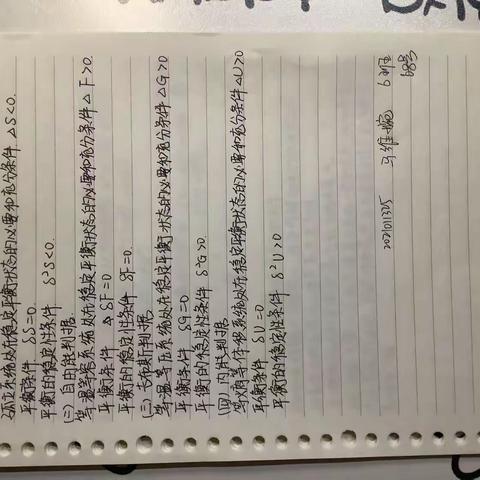 孤立系统处在稳定平衡状态的必要和充分条件 △S<0.
平衡条件 δS=0.
平衡的稳定性条件 δ²S<0.
(二) 自由能判据
等温等容系统处在稳定平衡状态的必要和充分条件 △F>0.
平衡条件 △ δF=0
平衡的稳定性条件 δF=0.
(三) 吉布斯判据
等温等压系统处在稳定平衡状态的必要和充分条件 △G>0
平衡条件 δG=0
平衡的稳定性条件 δ²G>0.
(四) 内能判据
等熵等体积系统处在稳定平衡状态的必要和充分条件 △U>0
平衡条件 δU=0
平衡的稳定性条件 δ²U>0
2021011325 马维婉 6班
68号